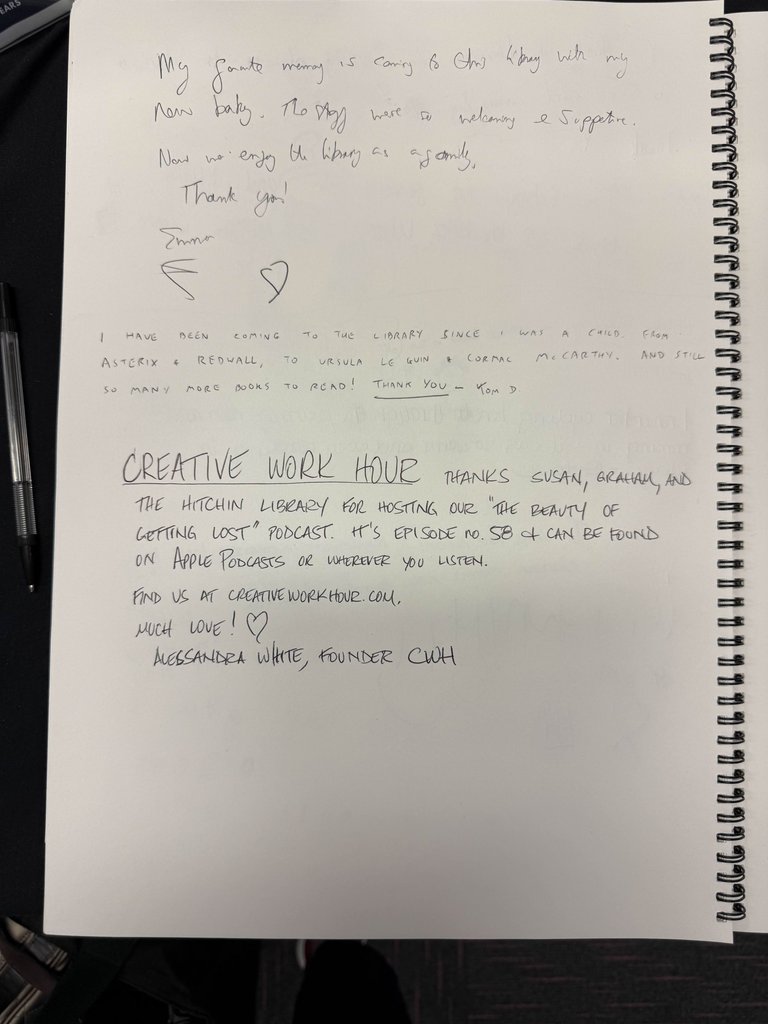 EARS
My favourite memory is coming to this library with my
new baby. The staff were so welcoming & supportive.
Now we enjoy the library as a family.
Thank you!
Emma
I HAVE BEEN COMING TO THE LIBRARY SINCE I WAS A CHILD. FROM
ASTERIX & REDWALL, TO URSULA LE GUIN & CORMAC McCARTHY. AND STILL
SO MANY MORE BOOKS TO READ! THANK YOU – TOM D
CREATIVE WORK HOUR THANKS SUSAN, GRAHAM, AND
THE HITCHIN LIBRARY FOR HOSTING OUR "THE BEAUTY OF
GETTING LOST" PODCAST. IT'S EPISODE no. 58 & CAN BE FOUND
ON APPLE PODCASTS OR WHEREVER YOU LISTEN.
FIND US AT CREATIVEWORKHOUR.COM.
MUCH LOVE! ♡
ALESSANDRA WHITE, FOUNDER CWH